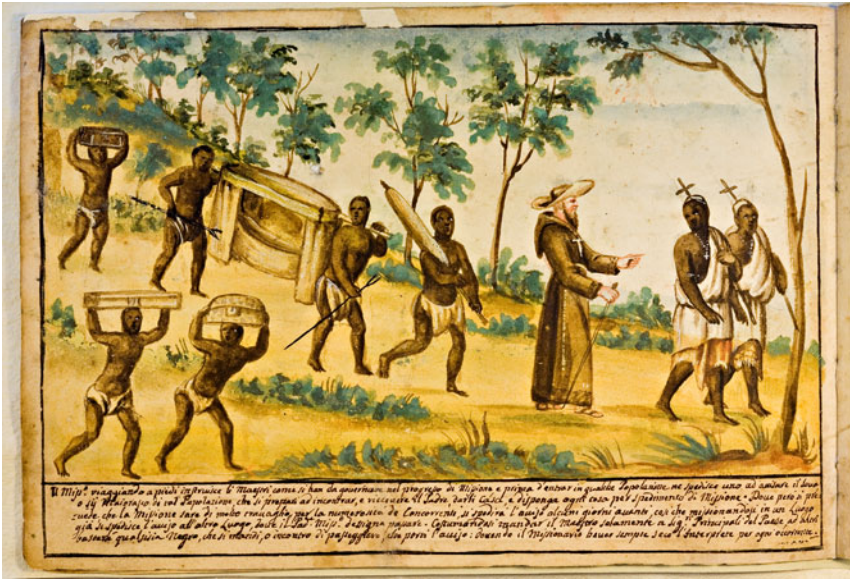 Il Miss.º viaggiando a piedi instruisce li Maestri come si han da governare nel progresso di Missione e prima d'entrar in qualche Popolazione, ne spedisce uno ad avisare il
o sij di tal Populazione, che si prepari ad incontrare, e ricevere il Padre, darli Casa, e disponga ogni cosa per spedimento di Missione. Dove però si pre
vede che la Missione sarà di molto travaglio, per la numerosità de Concorrenti, si spedirà l'aviso alcuni giorni avanti, così che missionandosi in un Luogo
già si spedisca l'aviso all'altro Luogo, dove il Pad. Miss.º designa passare. Costumandosi mandar il Maestro solamente a Sig.ri Principali del Paese, ad altri
bastando qualsisia Negro, che si mandi, o incontro di passeggiero, che porti l'aviso: dovendo il Missionario haver sempre seco l'Interprete per ogni occorrenza.